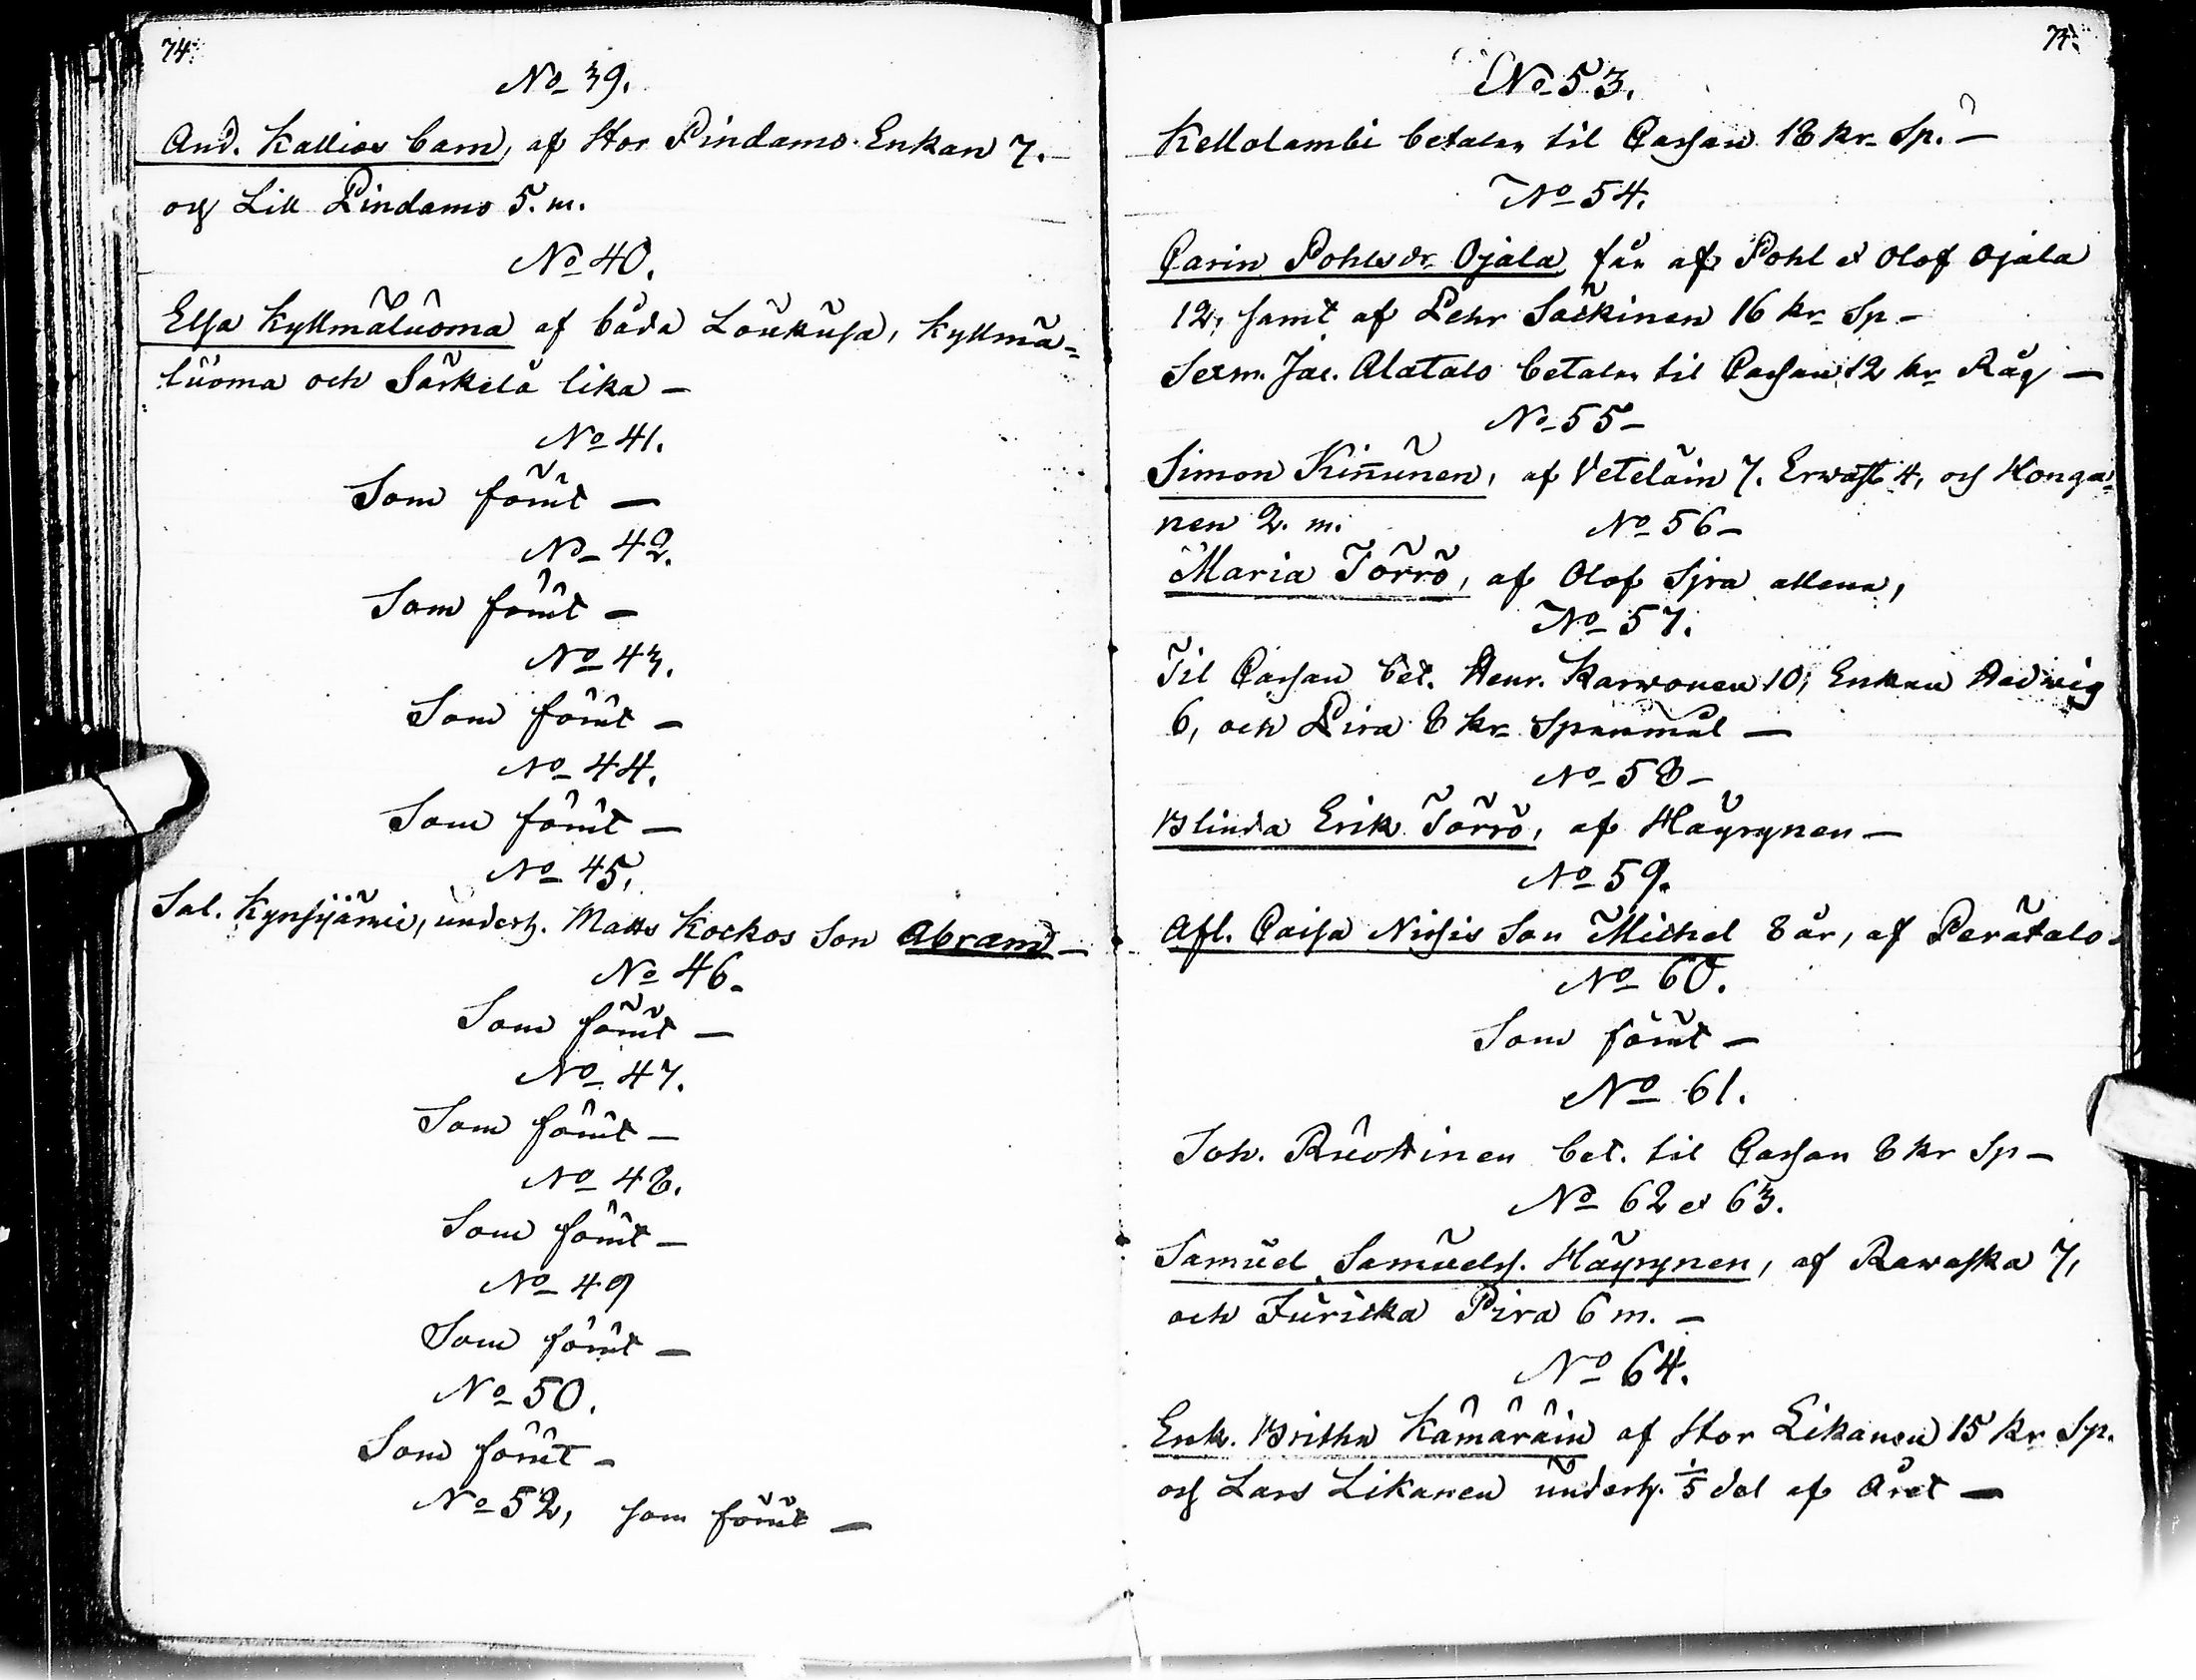 74.
No 39.
And. Kallios barn, af Stor Pindamo Enkan 7.
och Lill Pindamo 5. m.
No 40.
Elsa Kyllmäluoma af båda Loukusa, Kyllmä=
luoma och Särkelä lika –
No 41.
Som förut –
No 42.
Som förut –
No 43.
Som förut –
No 44.
Som förut –
No 45.
Sal. Kynsijärwi, underh. Matts Kockos Son Abram –
No 46.
Som förut –
No 47.
Som förut –
No 48.
Som förut –
No 49
Som förut –
No 50.
Som förut –
No 52, som förut –
No 53.
Kellolambi betalar til Cassan 18 kr Sp. –
No 54.
Carin Pohlsdr Ojala får af Pohl et Olof Ojala
12, samt af Pehr Säckinen 16 kr Sp –
Sexm. Jac. Alatalo betalar til Cassan 12 kr Råg –
No 55 –
Simon Kinnunen, af Veteläin 7. Erwast 4, och Honga=
nen 2. m.
No 56 –
Maria Törrö, af Olof Sjra allena,
No 57.
Til Cassan bet. Henr. Karwonen 10, Enkan Hedwig
6, och Pira 8 kr Spanmål –
No 58 –
Blinda Erik Törrö, af Häyrynen –
No 59.
Afl. Caisa Nissis Son Michel 8 år, af Perätalo.
No 60.
Som förut –
No 61.
Joh. Ruottinen bet. til Cassan 8 kr Sp –
No 62 et 63.
Samuel Samuels. Häyrynen, af Rawaska 7,
och Juricka Pira 6 m. –
No 64.
Enk. Britha Kämäräin af Stor Likanen 15 kr Sp.
och Lars Likanen underh. 1/5 del af Året –